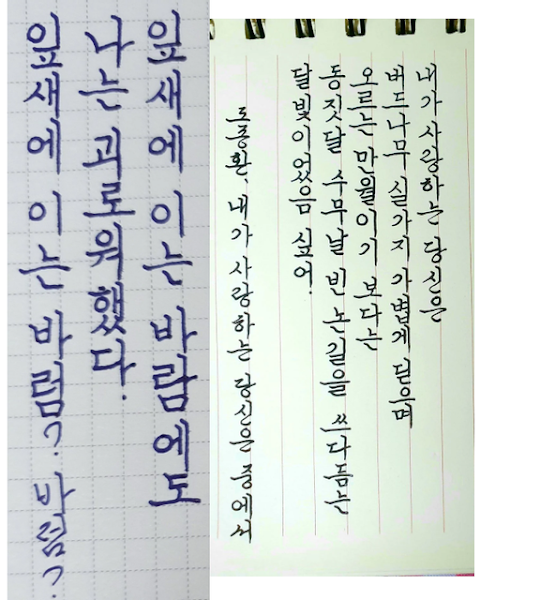 잎새에 이는 바람에도
나는 괴로워했다.
잎새에 이는 바럼? 바렴?
내가 사랑하는 당신은
버드나무 실가지 가볍게 딛으며
오르는 만월이기 보다는
동짓달 수무날 빈 논길을 쓰다듬는
달빛이었음 싶어.
도종환, 내가 사랑하는 당신은 중에서